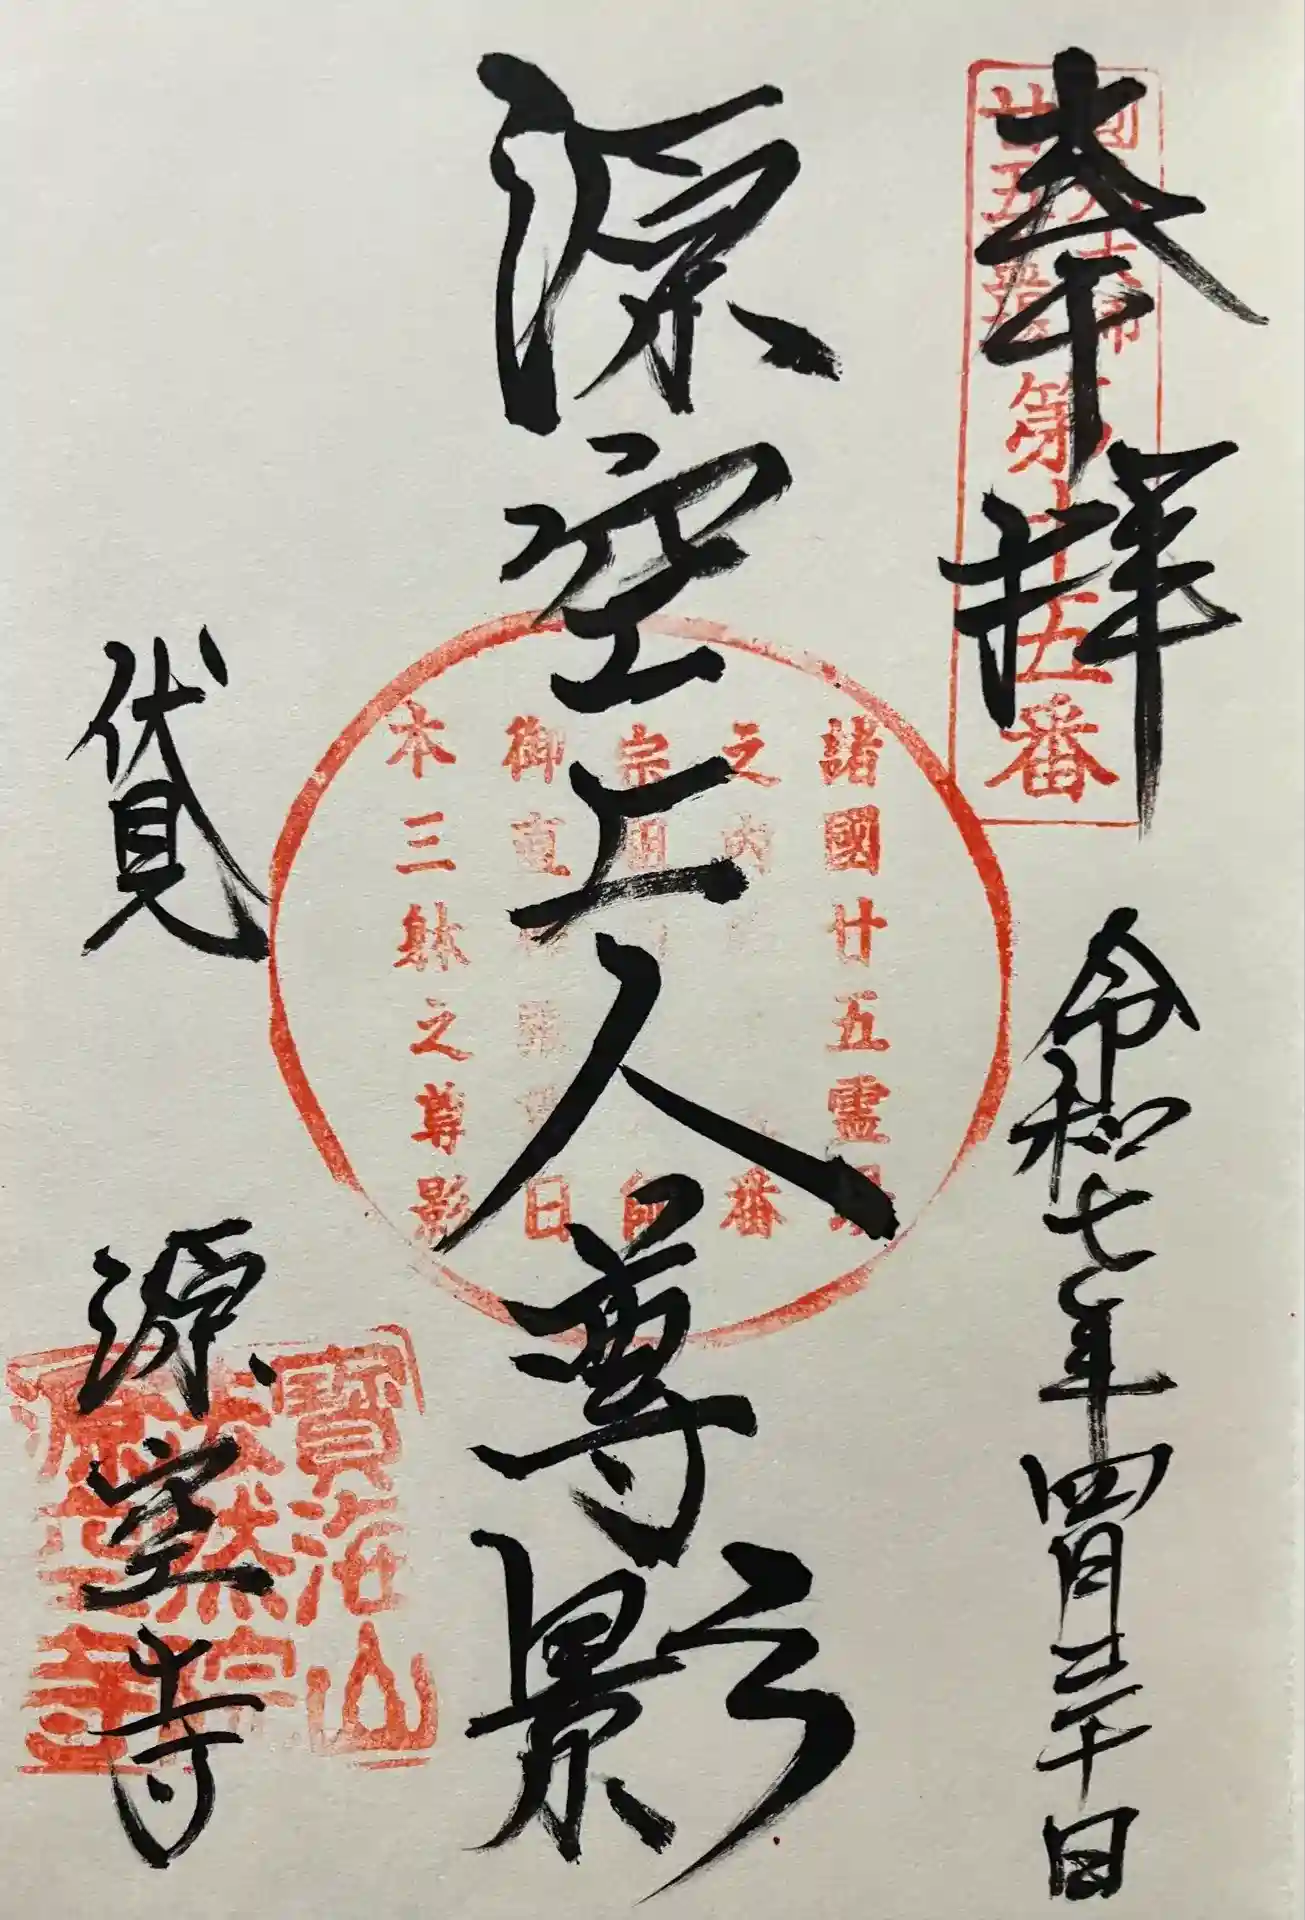 奉拝
廿五霊
第十五番
令和七年四月二十日
源空上人尊影
諸國廿五霊場
之内
番
宗
師
御直
日
本三躰之尊影
伏見
源空寺
寶海山
法然院
源空寺